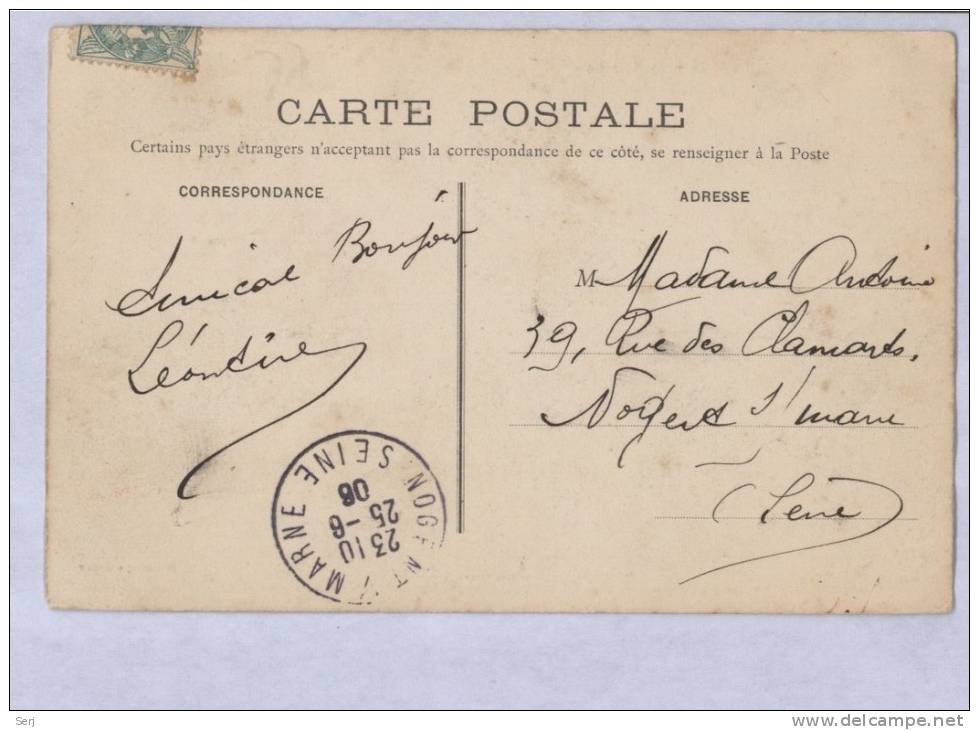 CARTE POSTALE
Certains pays étrangers n'acceptant pas la correspondance de ce côté, se renseigner à la Poste
CORRESPONDANCE
Amical Bonjour
Léontine
ADRESSE
M Madame Antoine
39, Rue des Clamarts.
Nogent s/ marne
(Seine)
NOGENT S/ MARNE SEINE
23 10
25 -6
06
Serj
www.delcampe.net